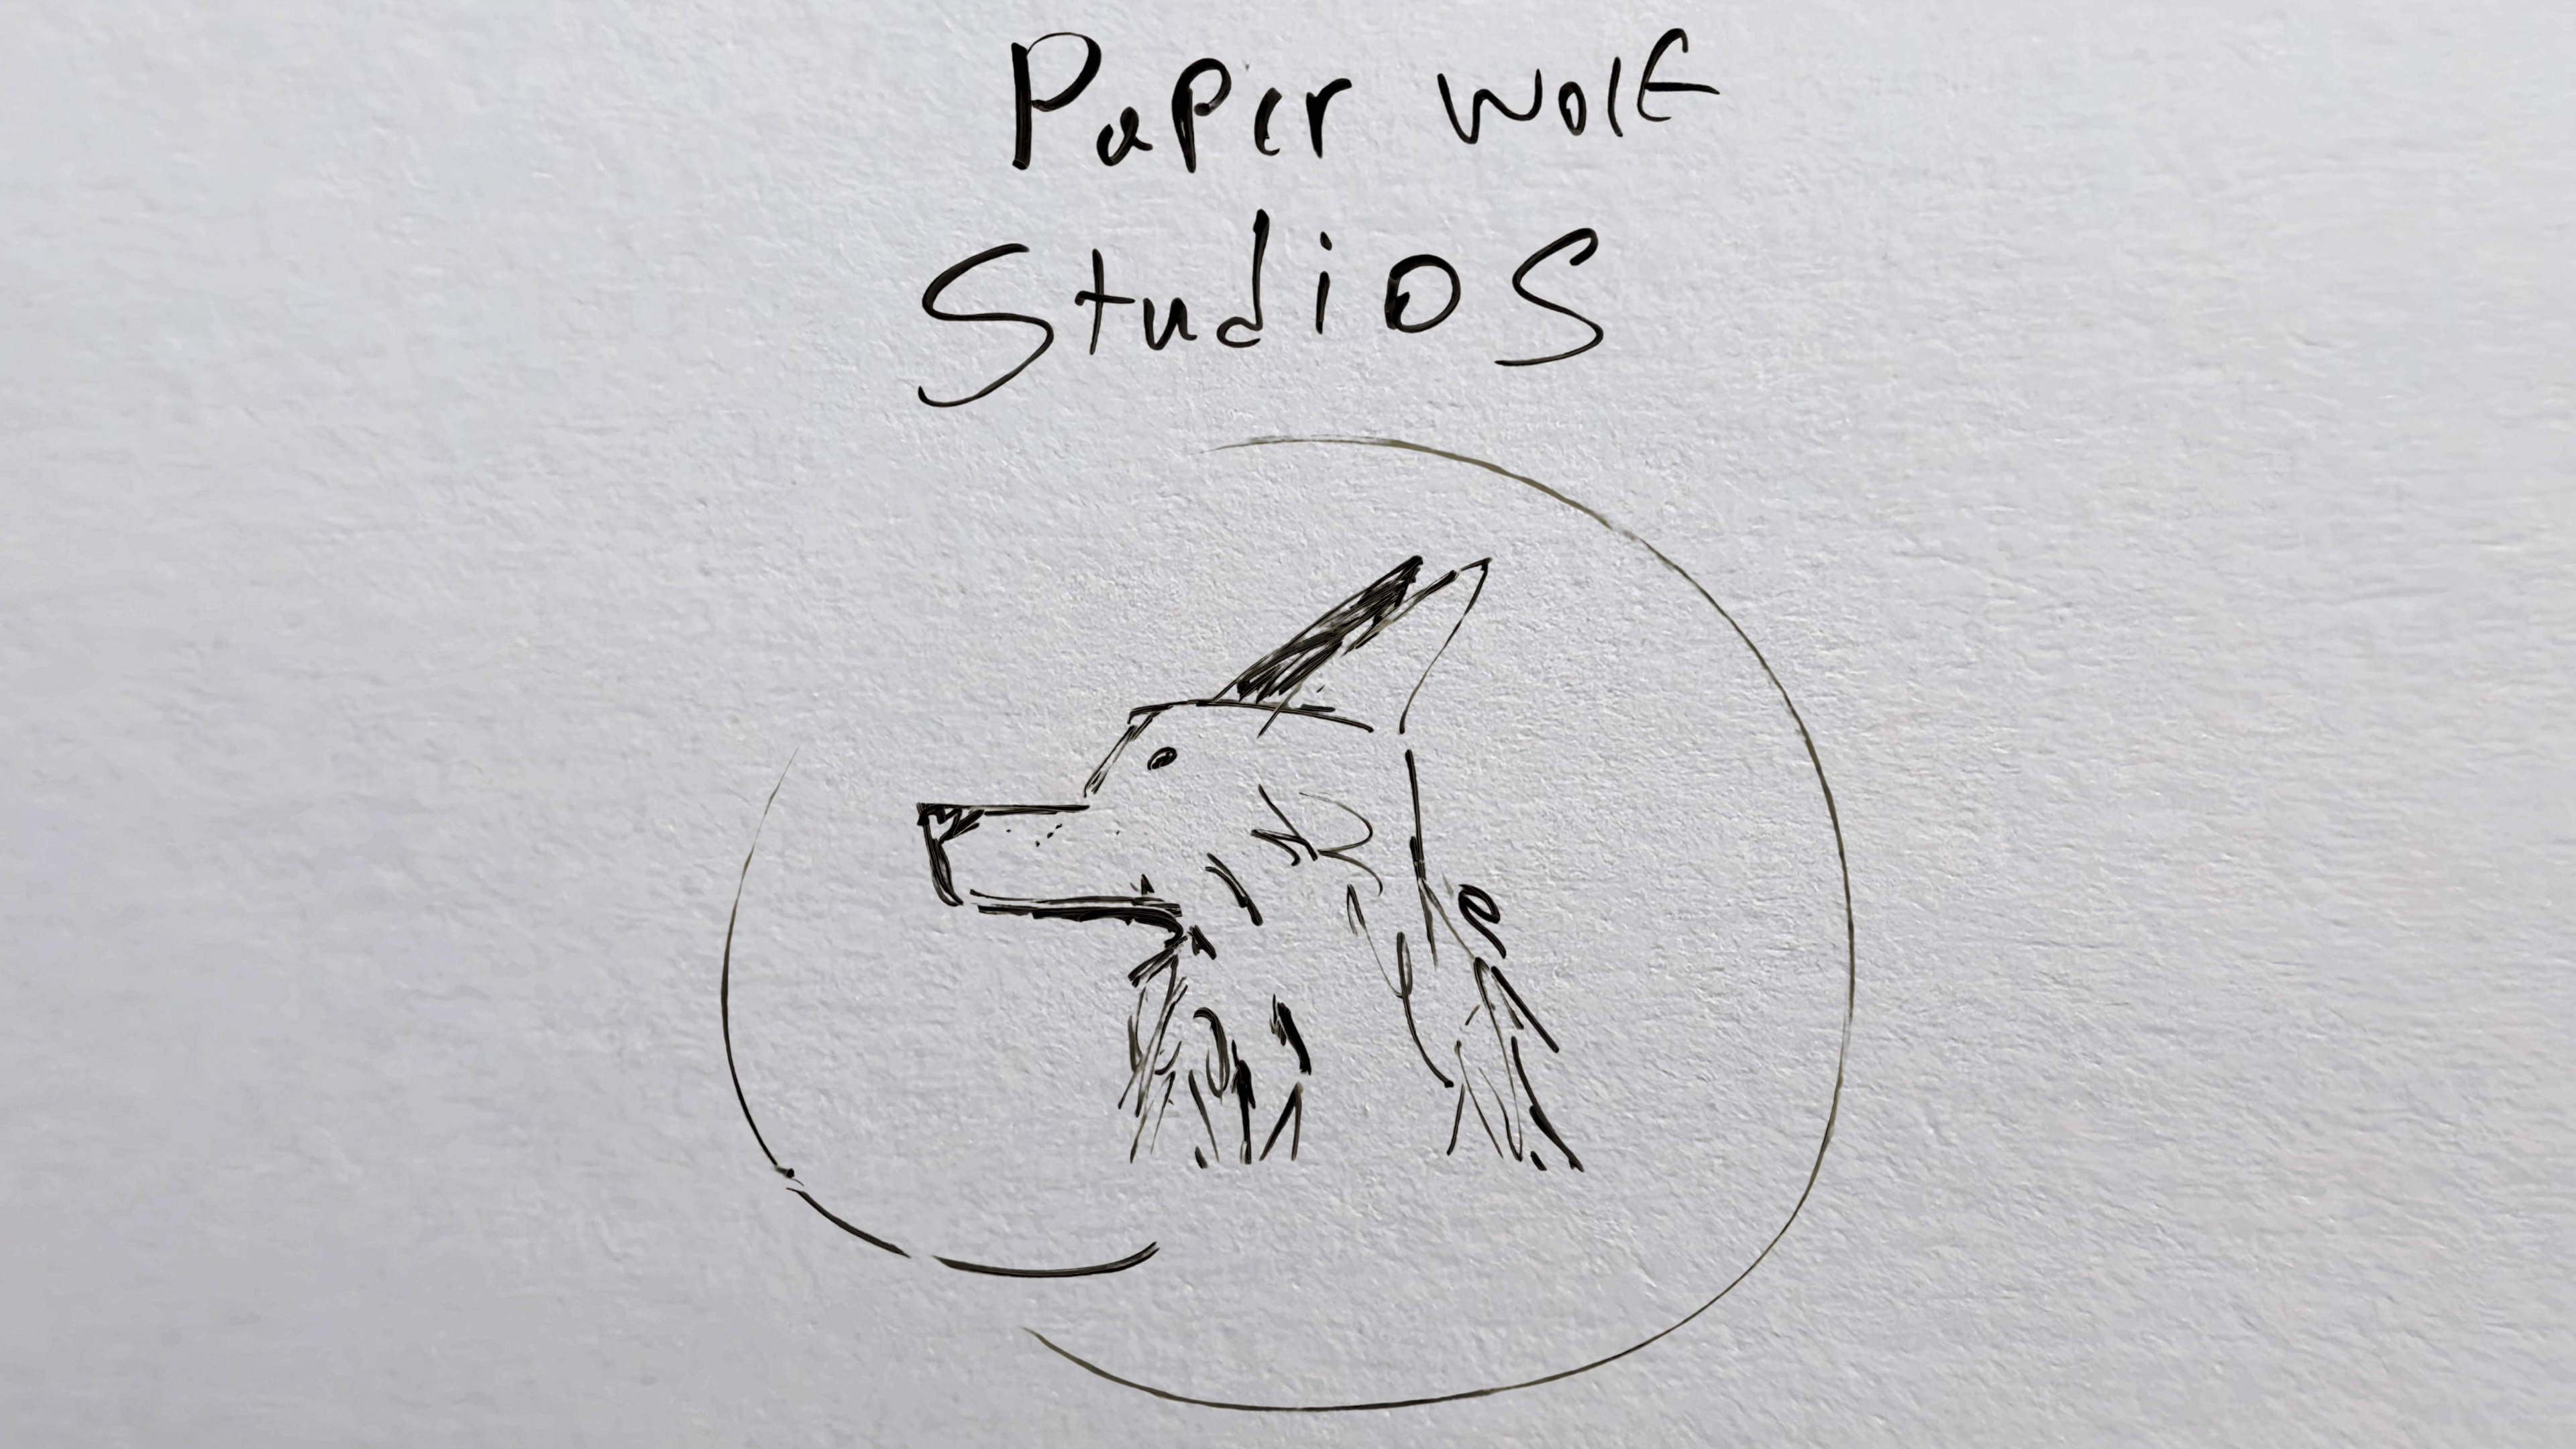 Paper Wolf
Studios